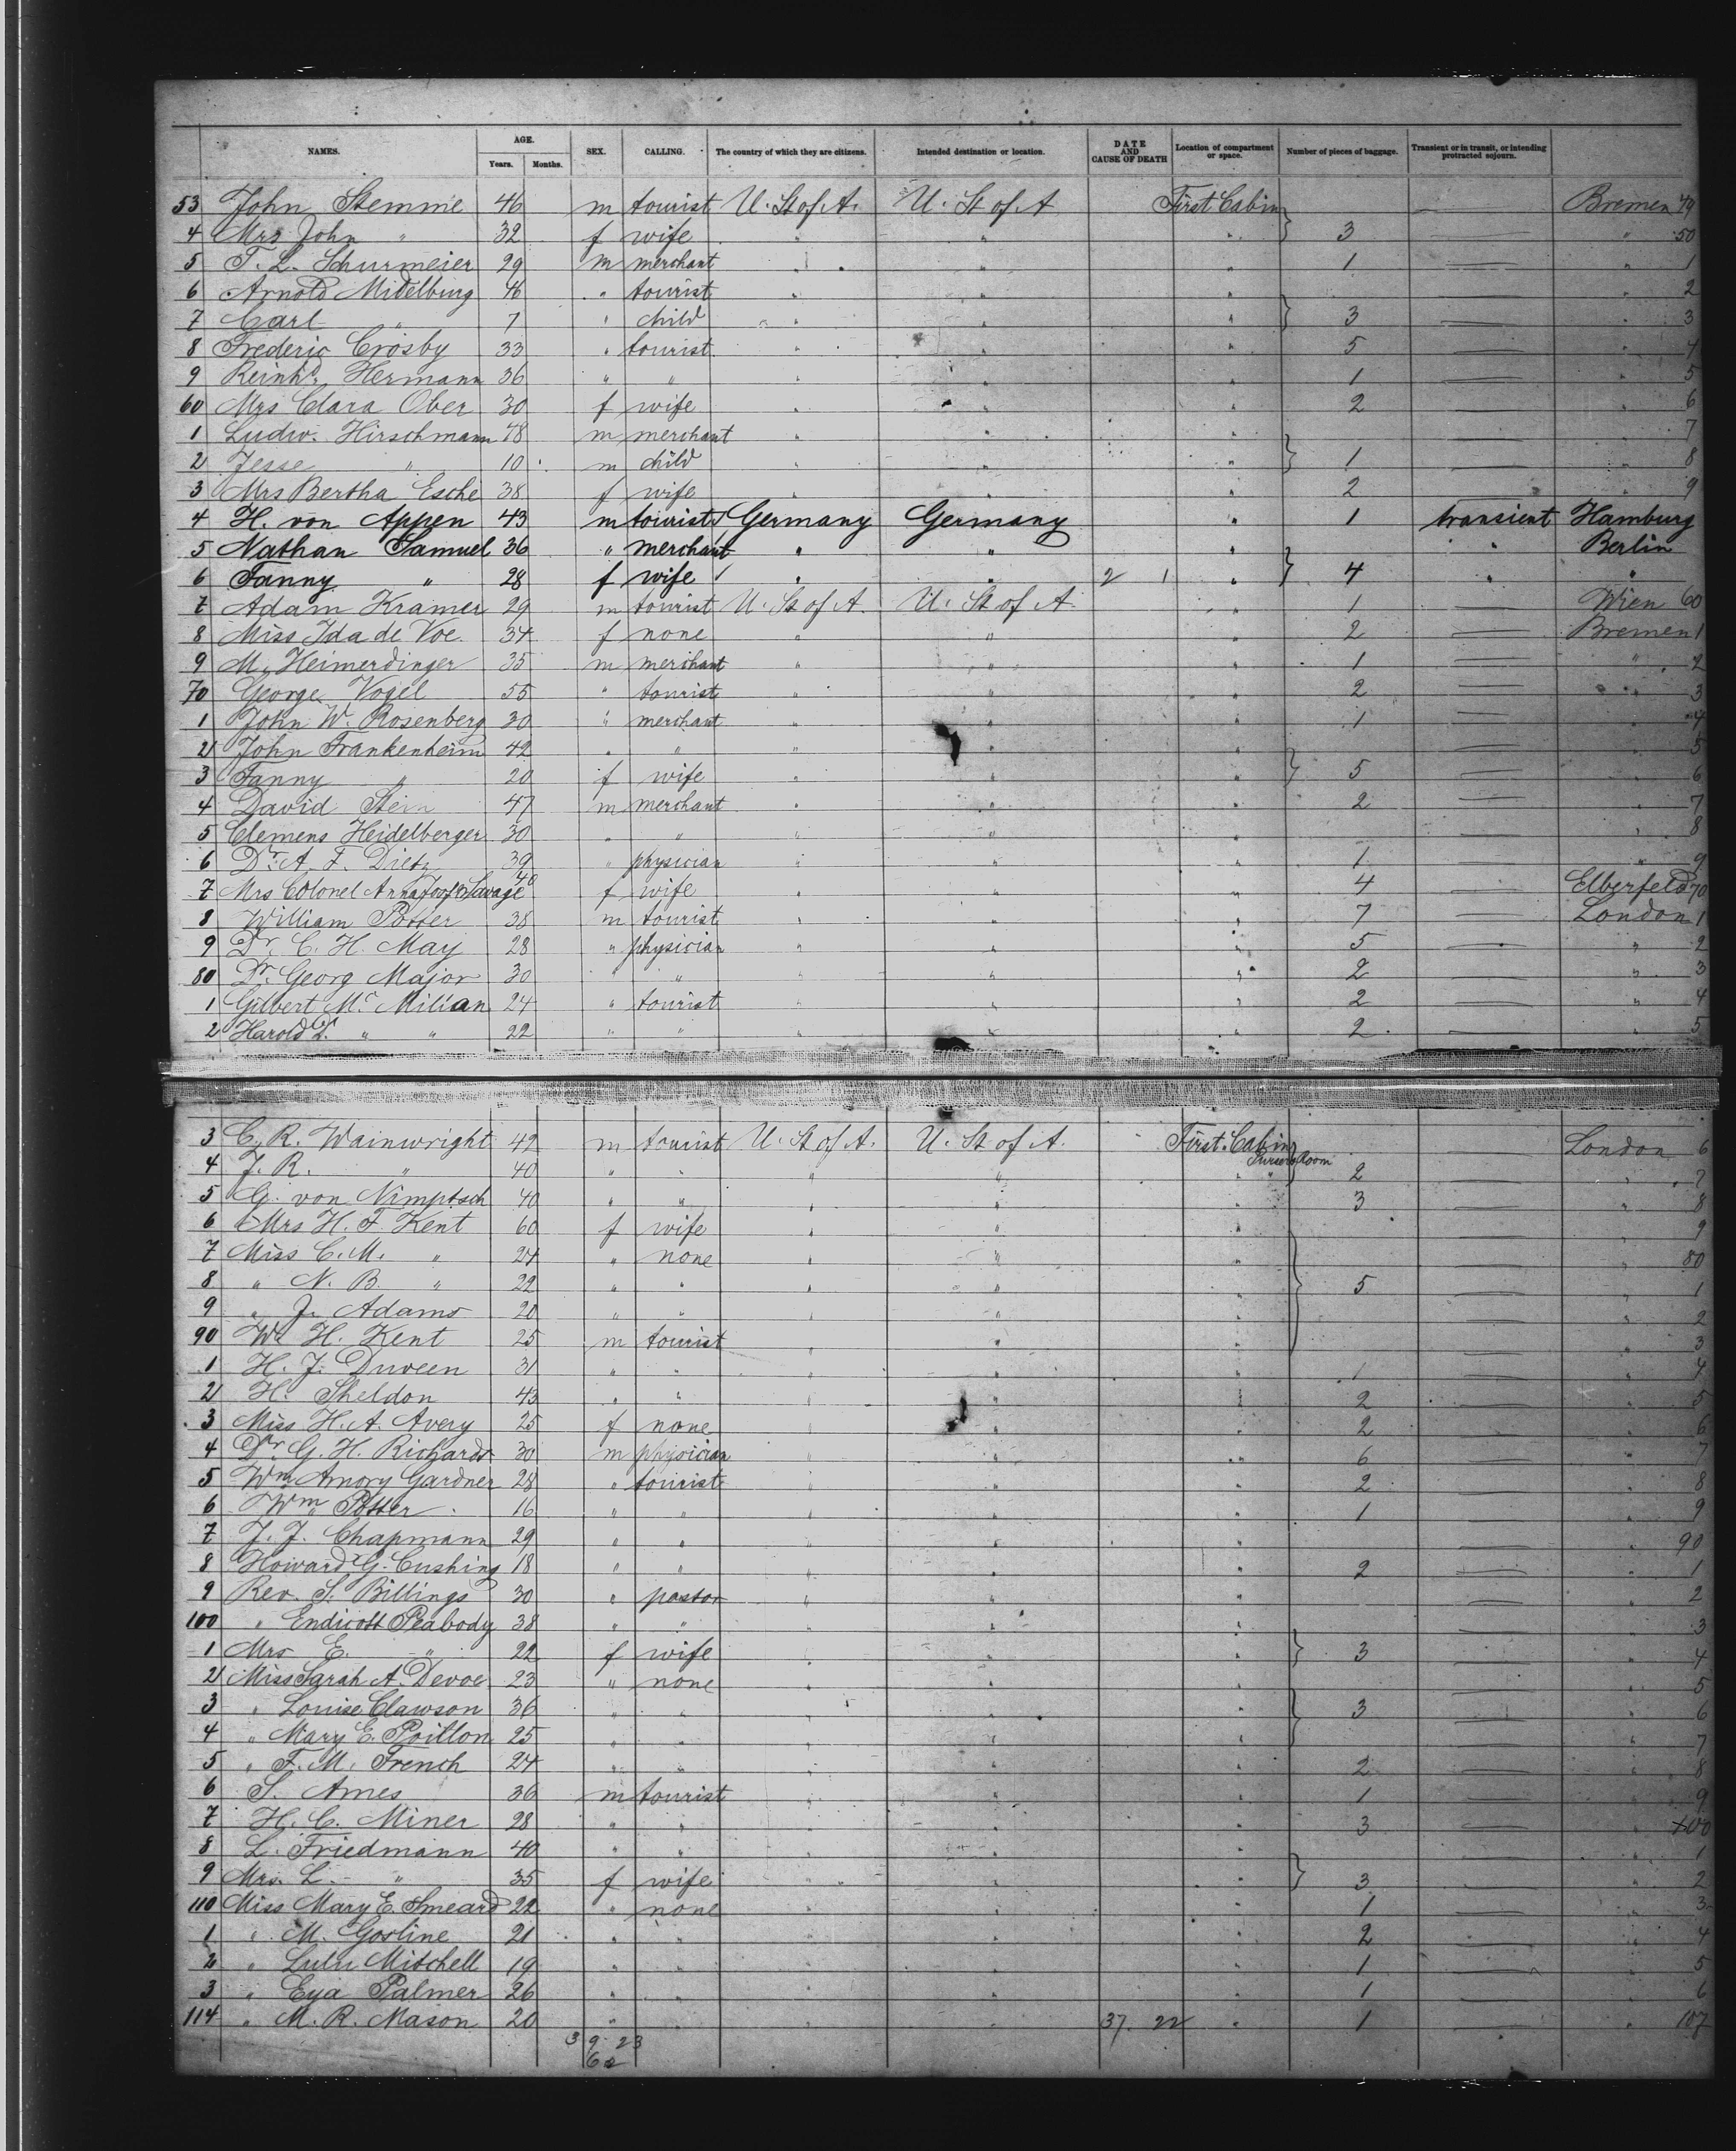 NAMES. AGE. Years. Months. SEX. CALLING. The country of which they are citizens. Intended destination or location. DATE AND CAUSE OF DEATH Location of compartment or space. Number of pieces of baggage. Transient or in transit, or intending protracted sojourn.
53 John Stemme 46 m tourist U. St of A. U. St of A First Cabin — Bremen 49
4 Mrs John " 32 f wife " " " 3 — " 50
5 T. L. Schurmeier 29 m merchant " " " 1 — " 1
6 Arnold Mittelburg 46 " tourist " " " — " 2
7 Carl " 7 " child " " " 3 — " 3
8 Frederic Crosby 33 " tourist " " " 5 — " 4
9 Reinhd. Hermann 36 " " " " " 1 — " 5
60 Mrs Clara Ober 30 f wife " " " 2 — " 6
1 Ludw. Hirschmann 48 m merchant " " " — " 7
2 Jesse " 10 m child " " " 1 — " 8
3 Mrs Bertha Esche 38 f wife " " " 2 — " 9
4 H. von Appen 43 m tourist Germany Germany " 1 transient Hamburg
5 Nathan Samuel 36 " merchant " " " " Berlin
6 Fanny " 28 f wife " " 2 1 " 4 " "
7 Adam Kramer 29 m tourist U. St of A. U. St of A. " 1 — Wien 60
8 Miss Ida de Voe 34 f none " " " 2 — Bremen 1
9 M. Heimerdinger 35 m merchant " " " 1 — " 2
70 George Vogel 55 " tourist " " " 2 — " 3
1 John W. Rosenberg 30 " merchant " " " 1 — " 4
2 John Frankenheim 42 " " " " " — " 5
3 Fanny " 20 f wife " " " 5 — " 6
4 David Stein 47 m merchant " " " 2 — " 7
5 Clemens Heidelberger 30 " " " " " — " 8
6 Dr. A. F. Dietz 39 " physician " " " 1 — " 9
7 Mrs Colonel Anna Savage 40 f wife " " " 4 — Elberfeld 70
8 William Potter 38 m tourist " " " 7 — London 1
9 Dr. C. H. May 28 " physician " " " 5 — " 2
80 Dr. Georg Major 30 " " " " " 2 — " 3
1 Gilbert Mc Milian 24 " tourist " " " 2 — " 4
2 Harold " " 22 " " " " " 2 — " 5
3 C. R. Wainwright 42 m tourist U. St of A. U. St of A. First Cabin — London 6
4 J. R. " 40 " " " " " Pursers Room 2 — " 7
5 G. von Nimptsch 40 " " " " " 3 — " 8
6 Mrs H. F. Kent 60 f wife " " " — " 9
7 Miss C. M. " 24 " none " " " — " 80
8 " N. B. " 22 " " " " " 5 — " 1
9 " J. Adams 20 " " " " " — " 2
90 W. H. Kent 25 m tourist " " " — " 3
1 H. J. Duveen 31 " " " " " 1 — " 4
2 H. Sheldon 43 " " " " " 2 — " 5
3 Miss H. A. Avery 25 f none " " " 2 — " 6
4 Dr. G. H. Richards 30 m physician " " " 6 — " 7
5 Wm Amory Gardner 28 " tourist " " " 2 — " 8
6 Wm Potter 16 " " " " " 1 — " 9
7 J. J. Chapmann 29 " " " " " — " 90
8 Howard G. Cushing 18 " " " " " 2 — " 1
9 Rev. S. Billings 30 " pastor " " " — " 2
100 " Endicott Peabody 38 " " " " " — " 3
1 Mrs E. " 22 f wife " " " 3 — " 4
2 Miss Sarah A. Devoe 23 " none " " " — " 5
3 " Louise Clawson 36 " " " " " 3 — " 6
4 " Mary E. Poillon 25 " " " " " — " 7
5 " F. M. French 24 " " " " " 2 — " 8
6 S. Ames 36 m tourist " " " 1 — " 9
7 H. C. Miner 28 " " " " " 3 — " 100
8 L. Friedmann 40 " " " " " — " 1
9 Mrs. L. " 35 f wife " " " 3 — " 2
110 Miss Mary E. Smeard 22 " none " " " 1 — " 3
1 " M. Gosline 21 " " " " " 2 — " 4
2 " Lulu Mitchell 19 " " " " " 1 — " 5
3 " Eya Palmer 26 " " " " " 1 — " 6
114 " M. R. Mason 20 " " " " 37. 22 " 1 — " 107
3 9 23
62